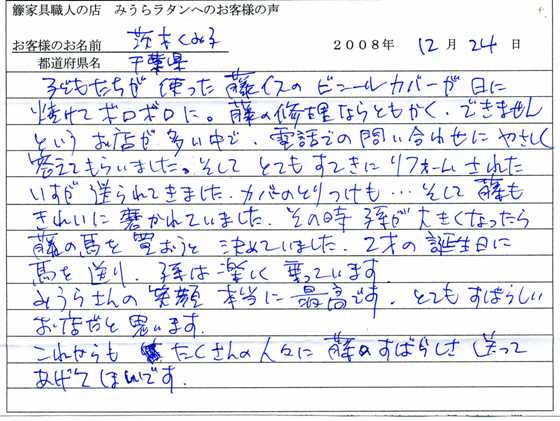 籐家具職人の店 みうらラタンへのお客様の声
お客様のお名前 茨木くみ子 2008年 12月 24日
都道府県名 千葉県
子どもたちが 使った 藤イスの ビニールカバーが 日に
焼けて ボロボロに。藤の修理ならともかく、できません
という お店が 多い中で、電話での問い合わせに やさしく
答えてもらいました。そして とても すてきに リフォーム された
いすが 送られてきました。カバーのとりつけも… そして 藤も
きれいに 磨かれていました。その時 孫が 大きくなったら
藤の馬を 買おうと 決めていました。2才の 誕生日に
馬を 送り、孫は 楽しく 乗っています
みうらさんの 笑顔 本当に 最高です。とても すばらしい
お店だと 思います。
これからも たくさんの人々に 藤の すばらしさ 送って
あげて ほしいです。